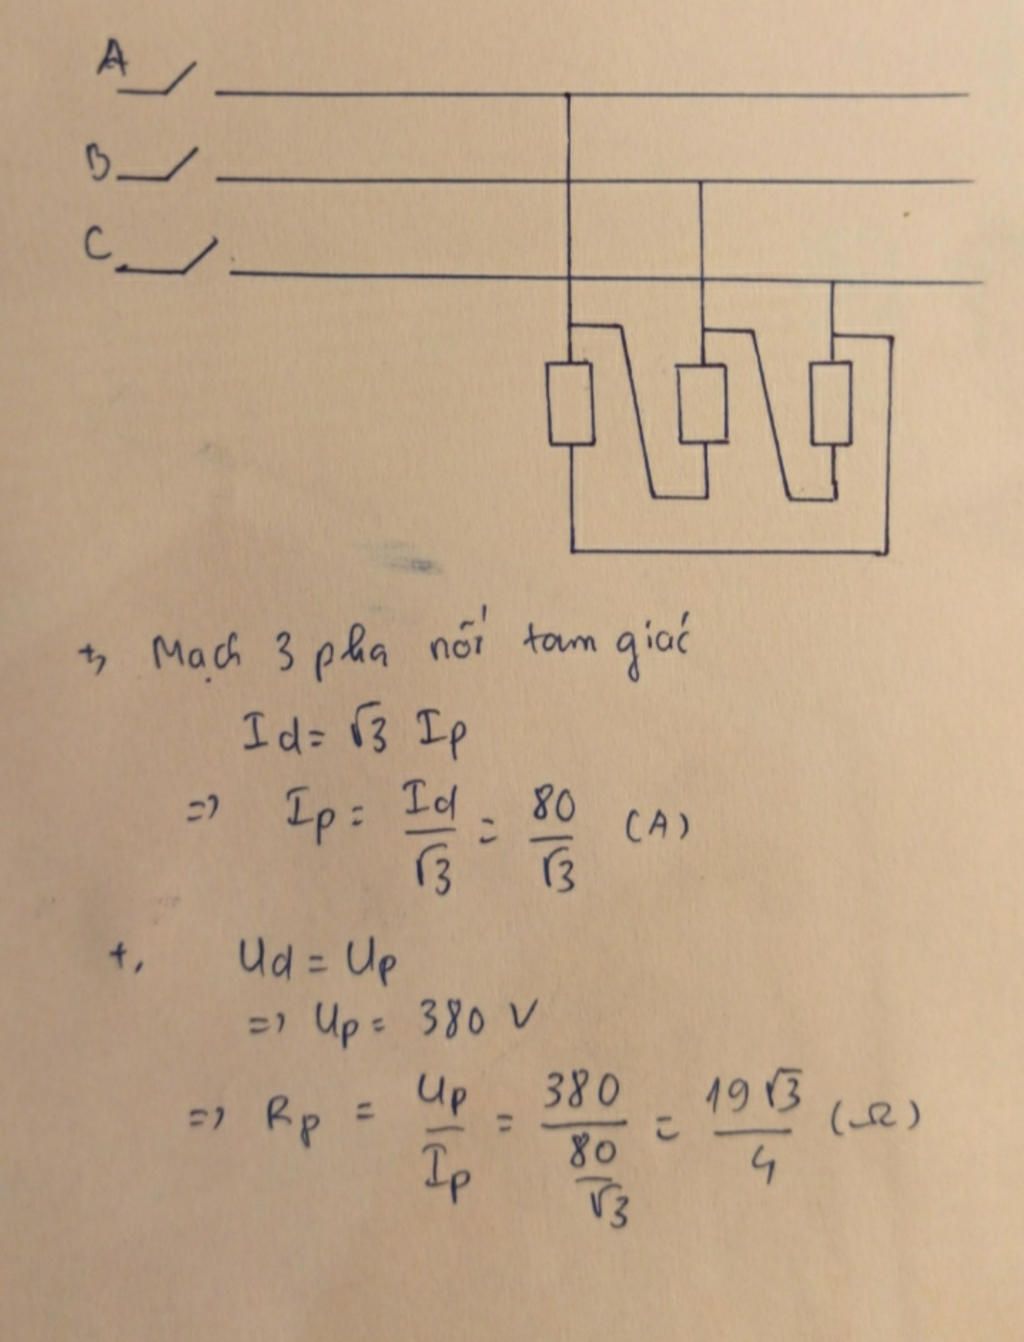 A
B
C
+, Mạch 3 pha nối tam giác
Id = √3 Ip
=> Ip = Id/√3 = 80/√3 (A)
+, Ud = Up
=> Up = 380 V
=> Rp = Up/Ip = 380/(80/√3) = 19√3/4 (Ω)